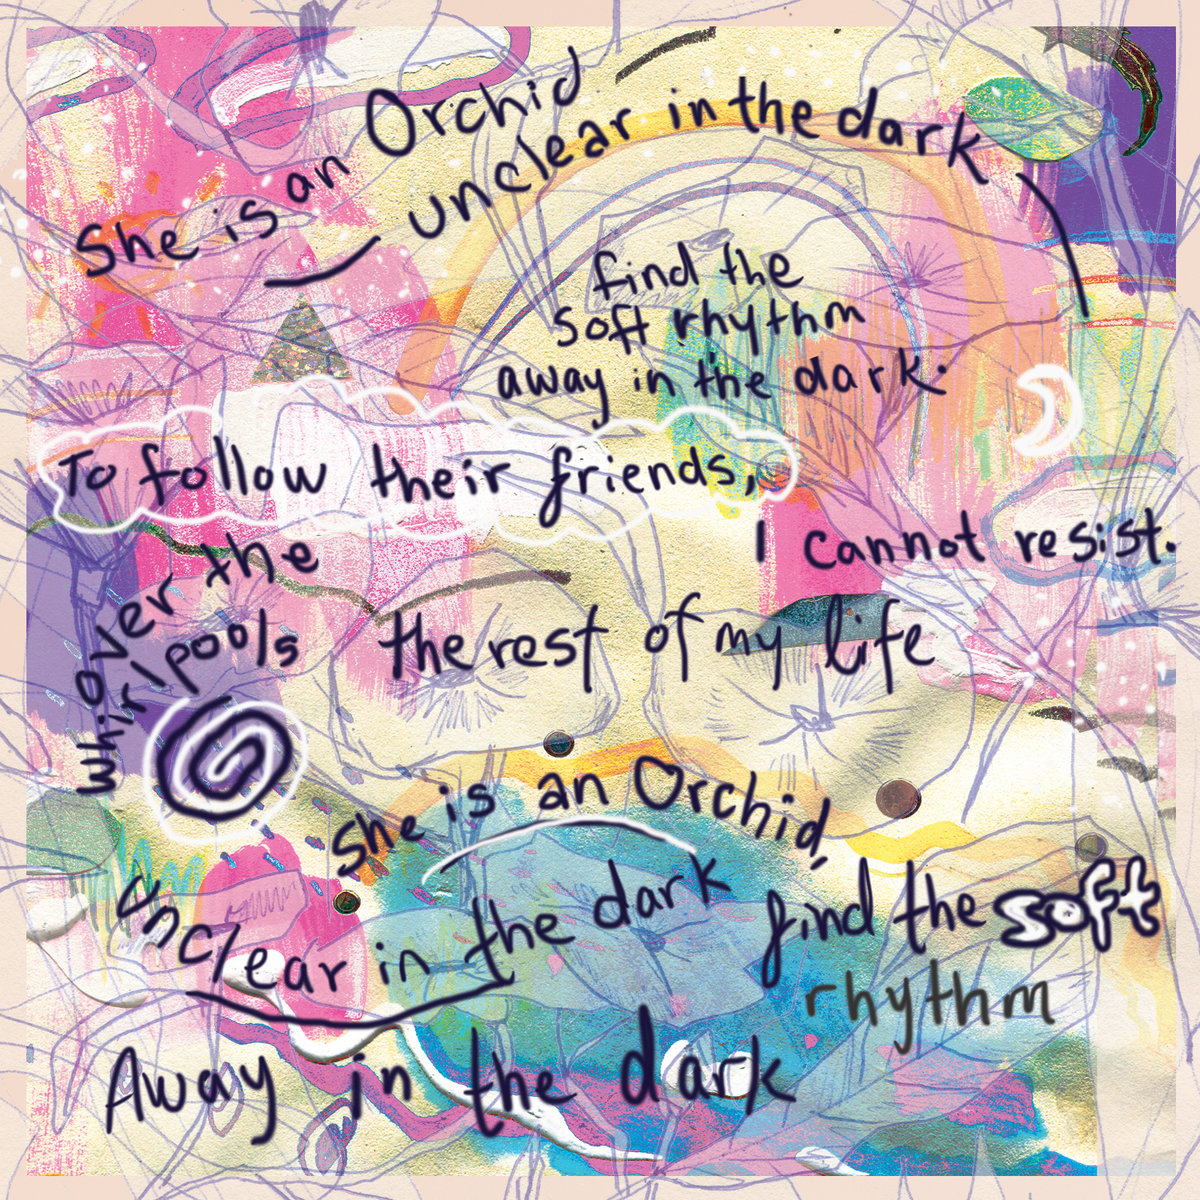 She is an Orchid
unclear in the dark
find the
soft rhythm
away in the dark.
To follow their friends,
I cannot resist.
over the
whirlpools
the rest of my life
She is an Orchid,
unclear in the dark
find the soft
rhythm
Away in the dark